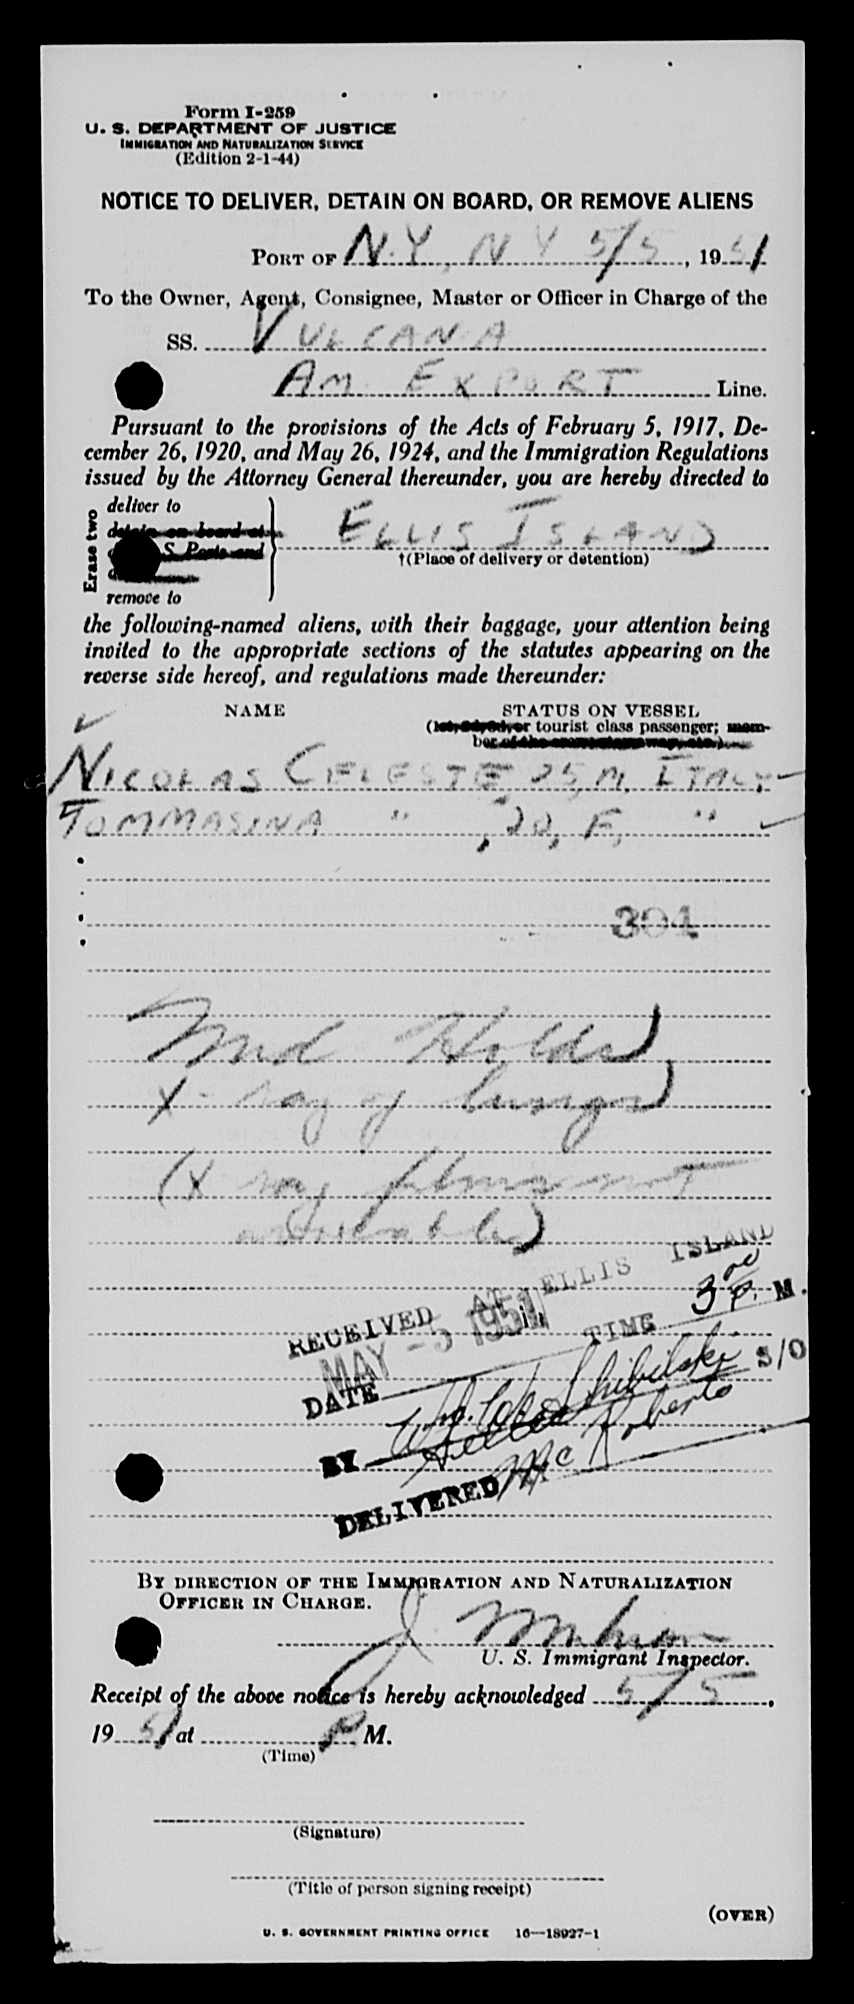 Form I-259
U. S. DEPARTMENT OF JUSTICE
IMMIGRATION AND NATURALIZATION SERVICE
(Edition 2-1-44)
NOTICE TO DELIVER, DETAIN ON BOARD, OR REMOVE ALIENS
PORT OF N.Y., N Y 5/5, 1951
To the Owner, Agent, Consignee, Master or Officer in Charge of the
SS. VULCANIA
AM. EXPORT Line.
Pursuant to the provisions of the Acts of February 5, 1917, De-
cember 26, 1920, and May 26, 1924, and the Immigration Regulations
issued by the Attorney General thereunder, you are hereby directed to
Erase two
deliver to
detain on board at
S. Ports and
remove to
ELLIS ISLAND
†(Place of delivery or detention)
the following-named aliens, with their baggage, your attention being
invited to the appropriate sections of the statutes appearing on the
reverse side hereof, and regulations made thereunder:
NAME STATUS ON VESSEL
(1st, 2d, 3d, or tourist class passenger; mem-
NICOLAS CELESTE, 25, M, ITALY
TOMMASINA " , 20, F, "
304
Med Holds
X-ray of lungs
(X ray films not
available)
RECEIVED AT ELLIS ISLAND
MAY -5 1951 TIME 3 00 P. M.
DATE
BY S/O
DELIVERED McRoberts
BY DIRECTION OF THE IMMIGRATION AND NATURALIZATION
OFFICER IN CHARGE.
U. S. Immigrant Inspector.
Receipt of the above notice is hereby acknowledged 5/5,
1951 at P M.
(Time)
(Signature)
(Title of person signing receipt)
(OVER)
U. S. GOVERNMENT PRINTING OFFICE 16—18927-1